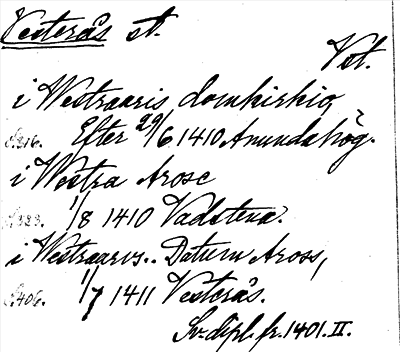 Vesterås st.
Vst.
i Westraaris domkirkio
S.216. Efter 29/6 1410 Anundshög.
i Westra Arose
S.223. 1/8 1410 Vadstena.
i Westraarus.. Datum Aross,
S.406. 1/7 1411 Vesterås.
Sv. dipl. fr. 1401. II.